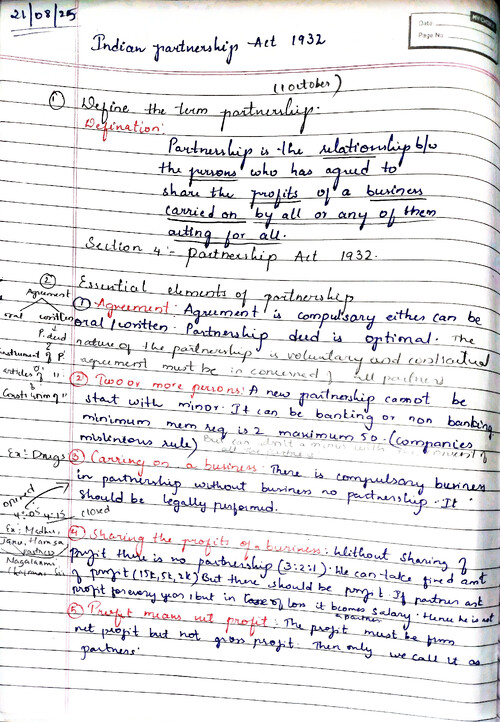 21/08/25
Date
Page No
Indian partnership Act 1932
(1 October)
① Define the term partnership.
Defination:
Partnership is the relationship b/w
the persons who has agreed to
share the profits of a business
carried on by all or any of them
acting for all.
Section 4 :- partnership Act 1932.
② Essential elements of partnership
Agreement
oral written
P. deed
instrument of P.
articles of ":
① Agreement: Agreement is compulsary either can be
oral/written. Partnership deed is optional. The
nature of the partnership is voluntary and contractual
agreement must be in concerned of all partners
② Two or more persons: A new partnership cannot be
start with minor. It can be banking or non banking
minimum mem req is 2 maximum 50. (companies
rule)
Ex: Drugs
③ Carring on a business: There is compulsary business
in partnership without business no partnership. It
should be legally performed.
opined
closed
4:05 4:15
Ex: Madhu,
Janu, Hamsa
partners
④ Sharing the profits of a business: Without sharing of
profit there is no partnership (3:2:1). He can take fixed amt
of profit (15k, 5k, 2k) But there should be profit. If partner ask
profit for every year, but in case of loss it becomes salary. Hence he is not
a partner
⑤ Profit means net profit: The profit must be from
net profit but not gross profit. Then only we call it as
partners.